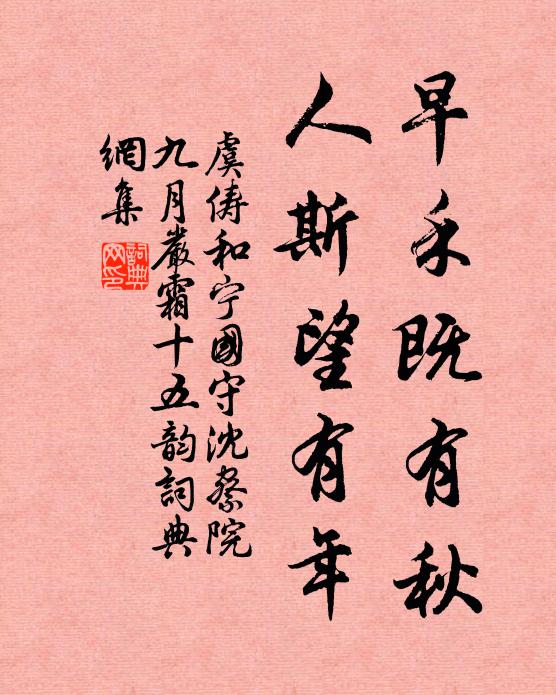 早禾既有秋
人斯望有年
虞俦和宁國守沈察院
九月嚴霜十五韵詞典
網集
詞典网印